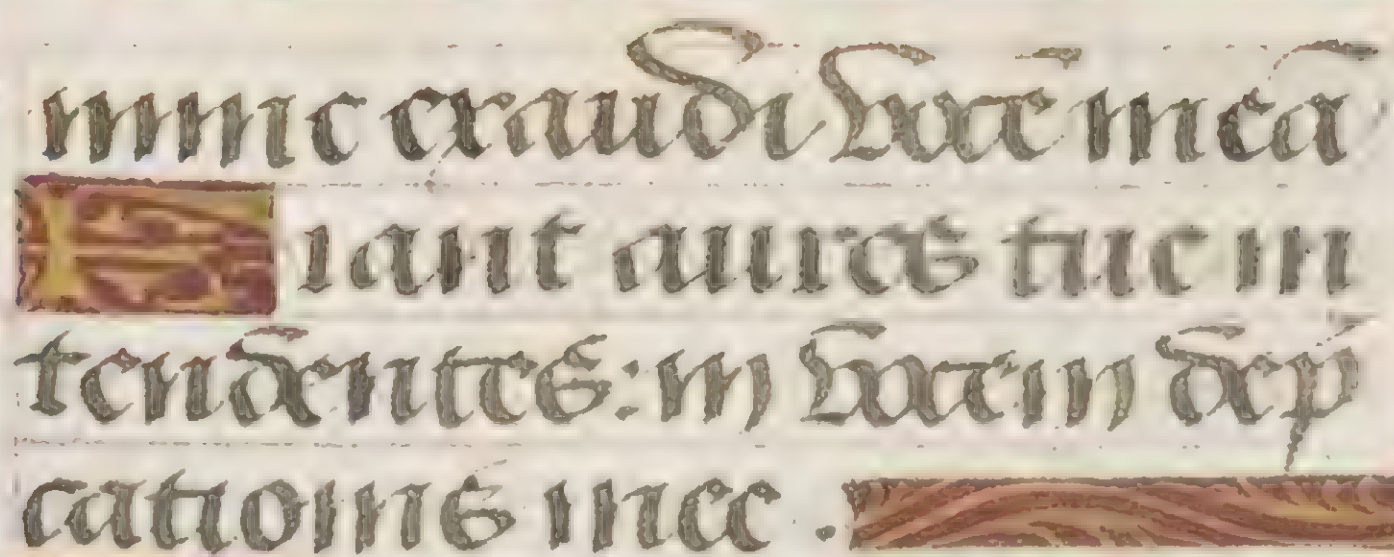 mine exaudi vocē meā
Fiant aures tue in
tendentes: in vocem dep̄
cationis mee .